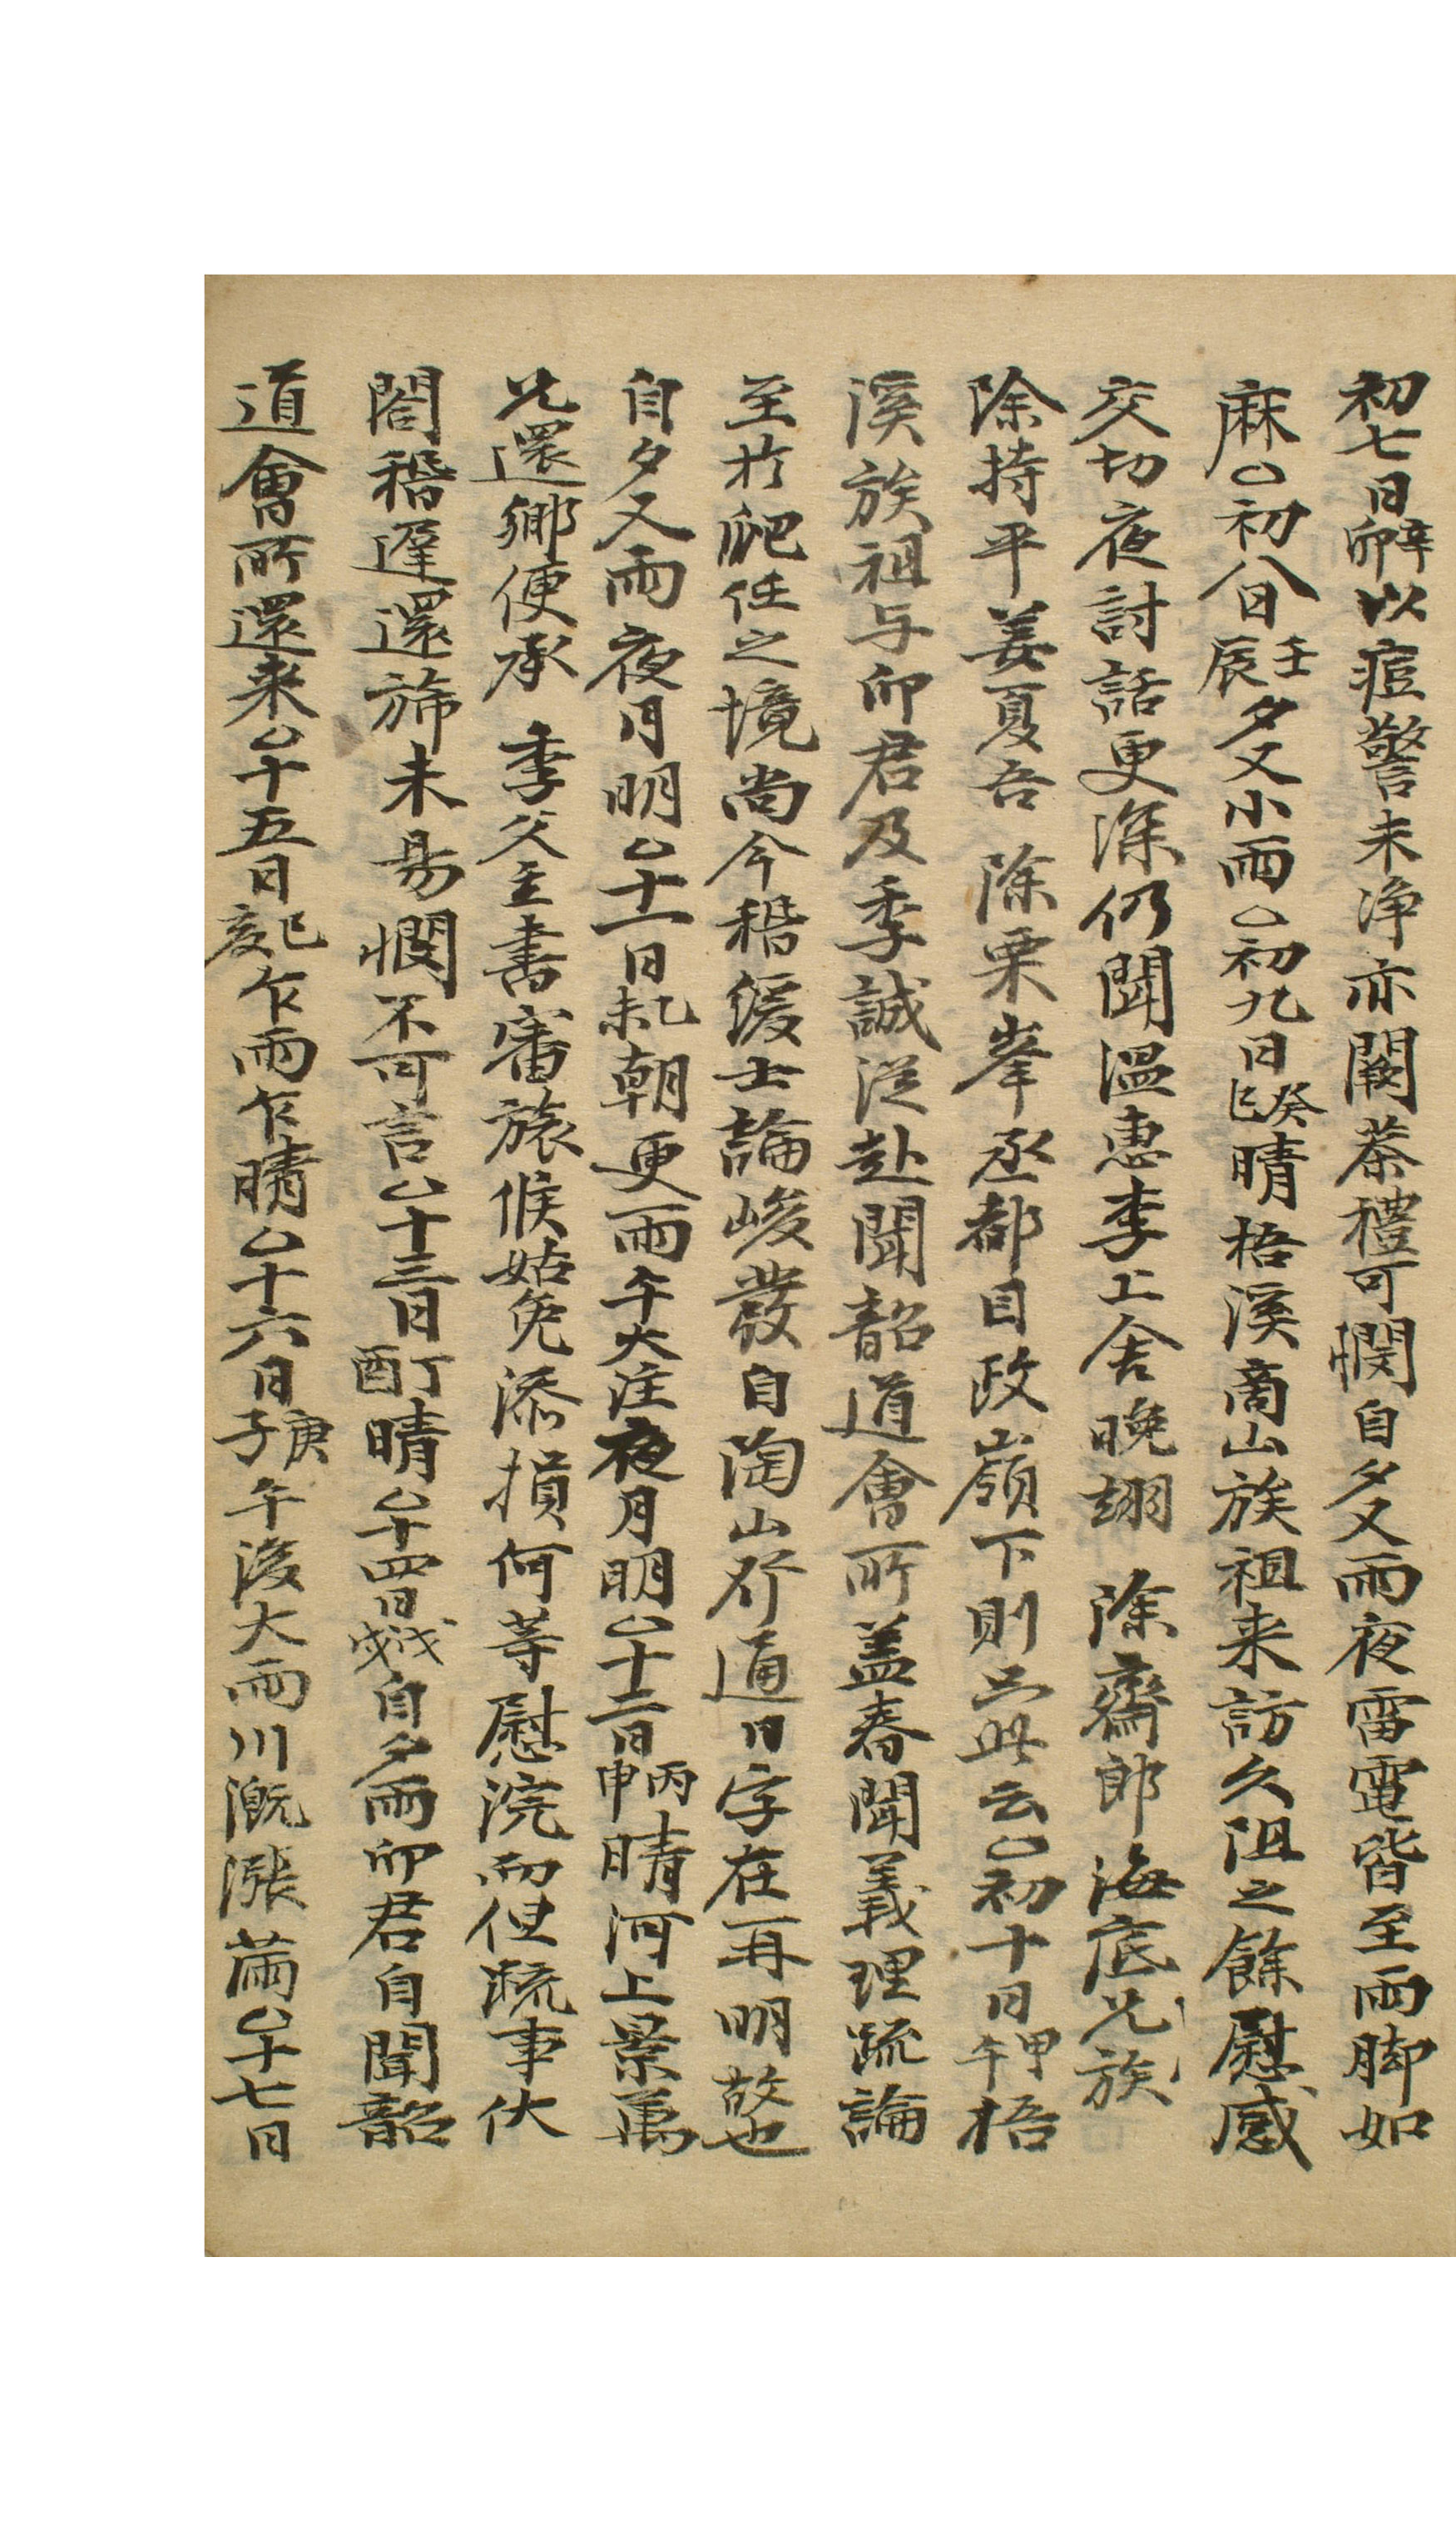 初七日辛卯以痘警未淨亦闕茶禮可憫自夕又雨夜雷電皆至雨脚如
麻○初八日壬辰夕又小雨○初九日癸巳晴梧溪商山族祖来訪久阻之餘慰感
交切夜討話更深仍聞溫惠李上舍晩翊 除齋郎海底兄族
除持平姜夏吾 除栗峯丞都目政嶺下則止此云○初十日甲午梧
溪族祖与卯君及季誠從赴聞韶道會所盖春聞義理疏論
至於爬任之境尚今稽緩士論峻發自陶山發通日字在再明故也
自夕又雨夜月明○十一日乙未朝更雨午大注夜月明○十二日丙申晴河上景萬
兄還鄉便承 季父主書審旅候姑免添損何等慰浣而但疏事伏
閤稽遲還旆未易憫不可言○十三日丁酉晴○十四日戊戌自夕雨卯君自聞韶
道會所還来○十五日己亥乍雨乍晴○十六日庚子午後大雨川漑漲滿○十七日